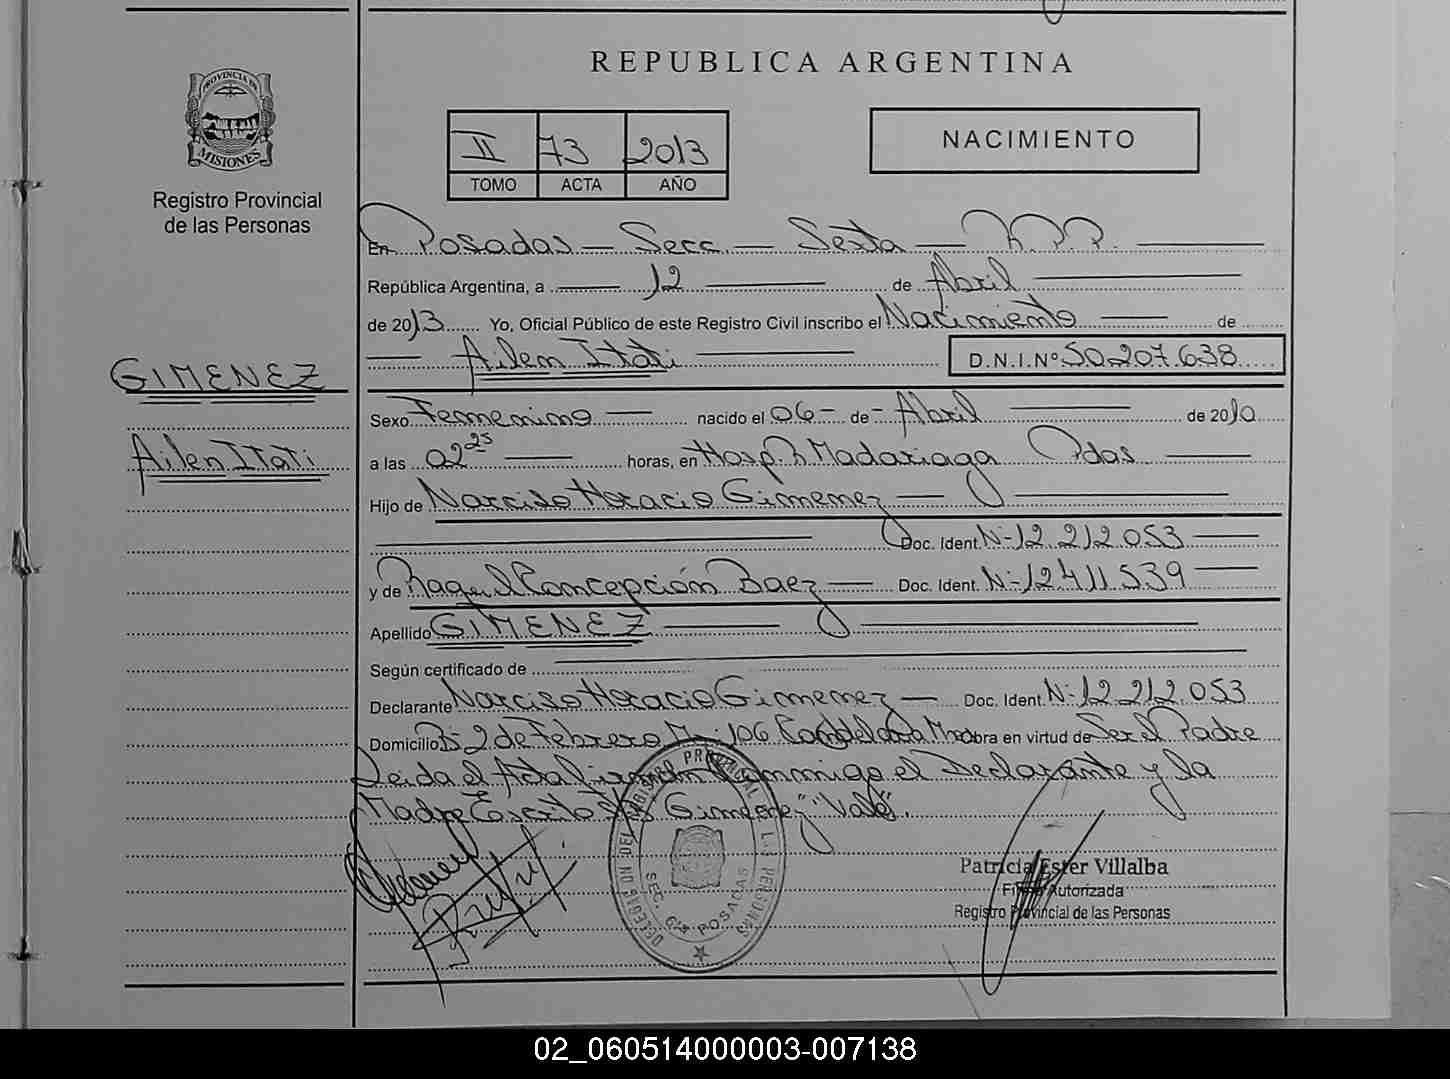 REPUBLICA ARGENTINA
PROVINCIA DE
MISIONES
Registro Provincial
de las Personas
II 73 2013
TOMO ACTA AÑO
NACIMIENTO
En Posadas — Secc. — Sexta — R.P.P.
República Argentina, a 12 de Abril
de 2013 Yo, Oficial Público de este Registro Civil inscribo el Nacimiento de
Ailen Itati D.N.I. Nº 50.207.638
GIMENEZ
Ailen Itati
Sexo Femenino nacido el 06 de Abril de 2010
a las 02 25 horas, en Hosp. R. Madariaga Pdas
Hijo de Narciso Horacio Gimenez
Doc. Ident. Nº 12.212.053
y de Raquel Concepción Baez Doc. Ident. Nº 12.411.539
Apellido GIMENEZ
Según certificado de
Declarante Narciso Horacio Gimenez Doc. Ident. Nº 12.212.053
Domicilio Bº 2 de Febrero 106 Candelaria obra en virtud de Ser el Padre
Leida el Acta firman Conmigo el Declarante y la
Madre Gimenez "Vale".
DELEGACION DEL REGISTRO PROVINCIAL LAS PERSONAS
SEC. 6ta POSADAS
Patricia Ester Villalba
Firma Autorizada
Registro Provincial de las Personas
02_060514000003-007138